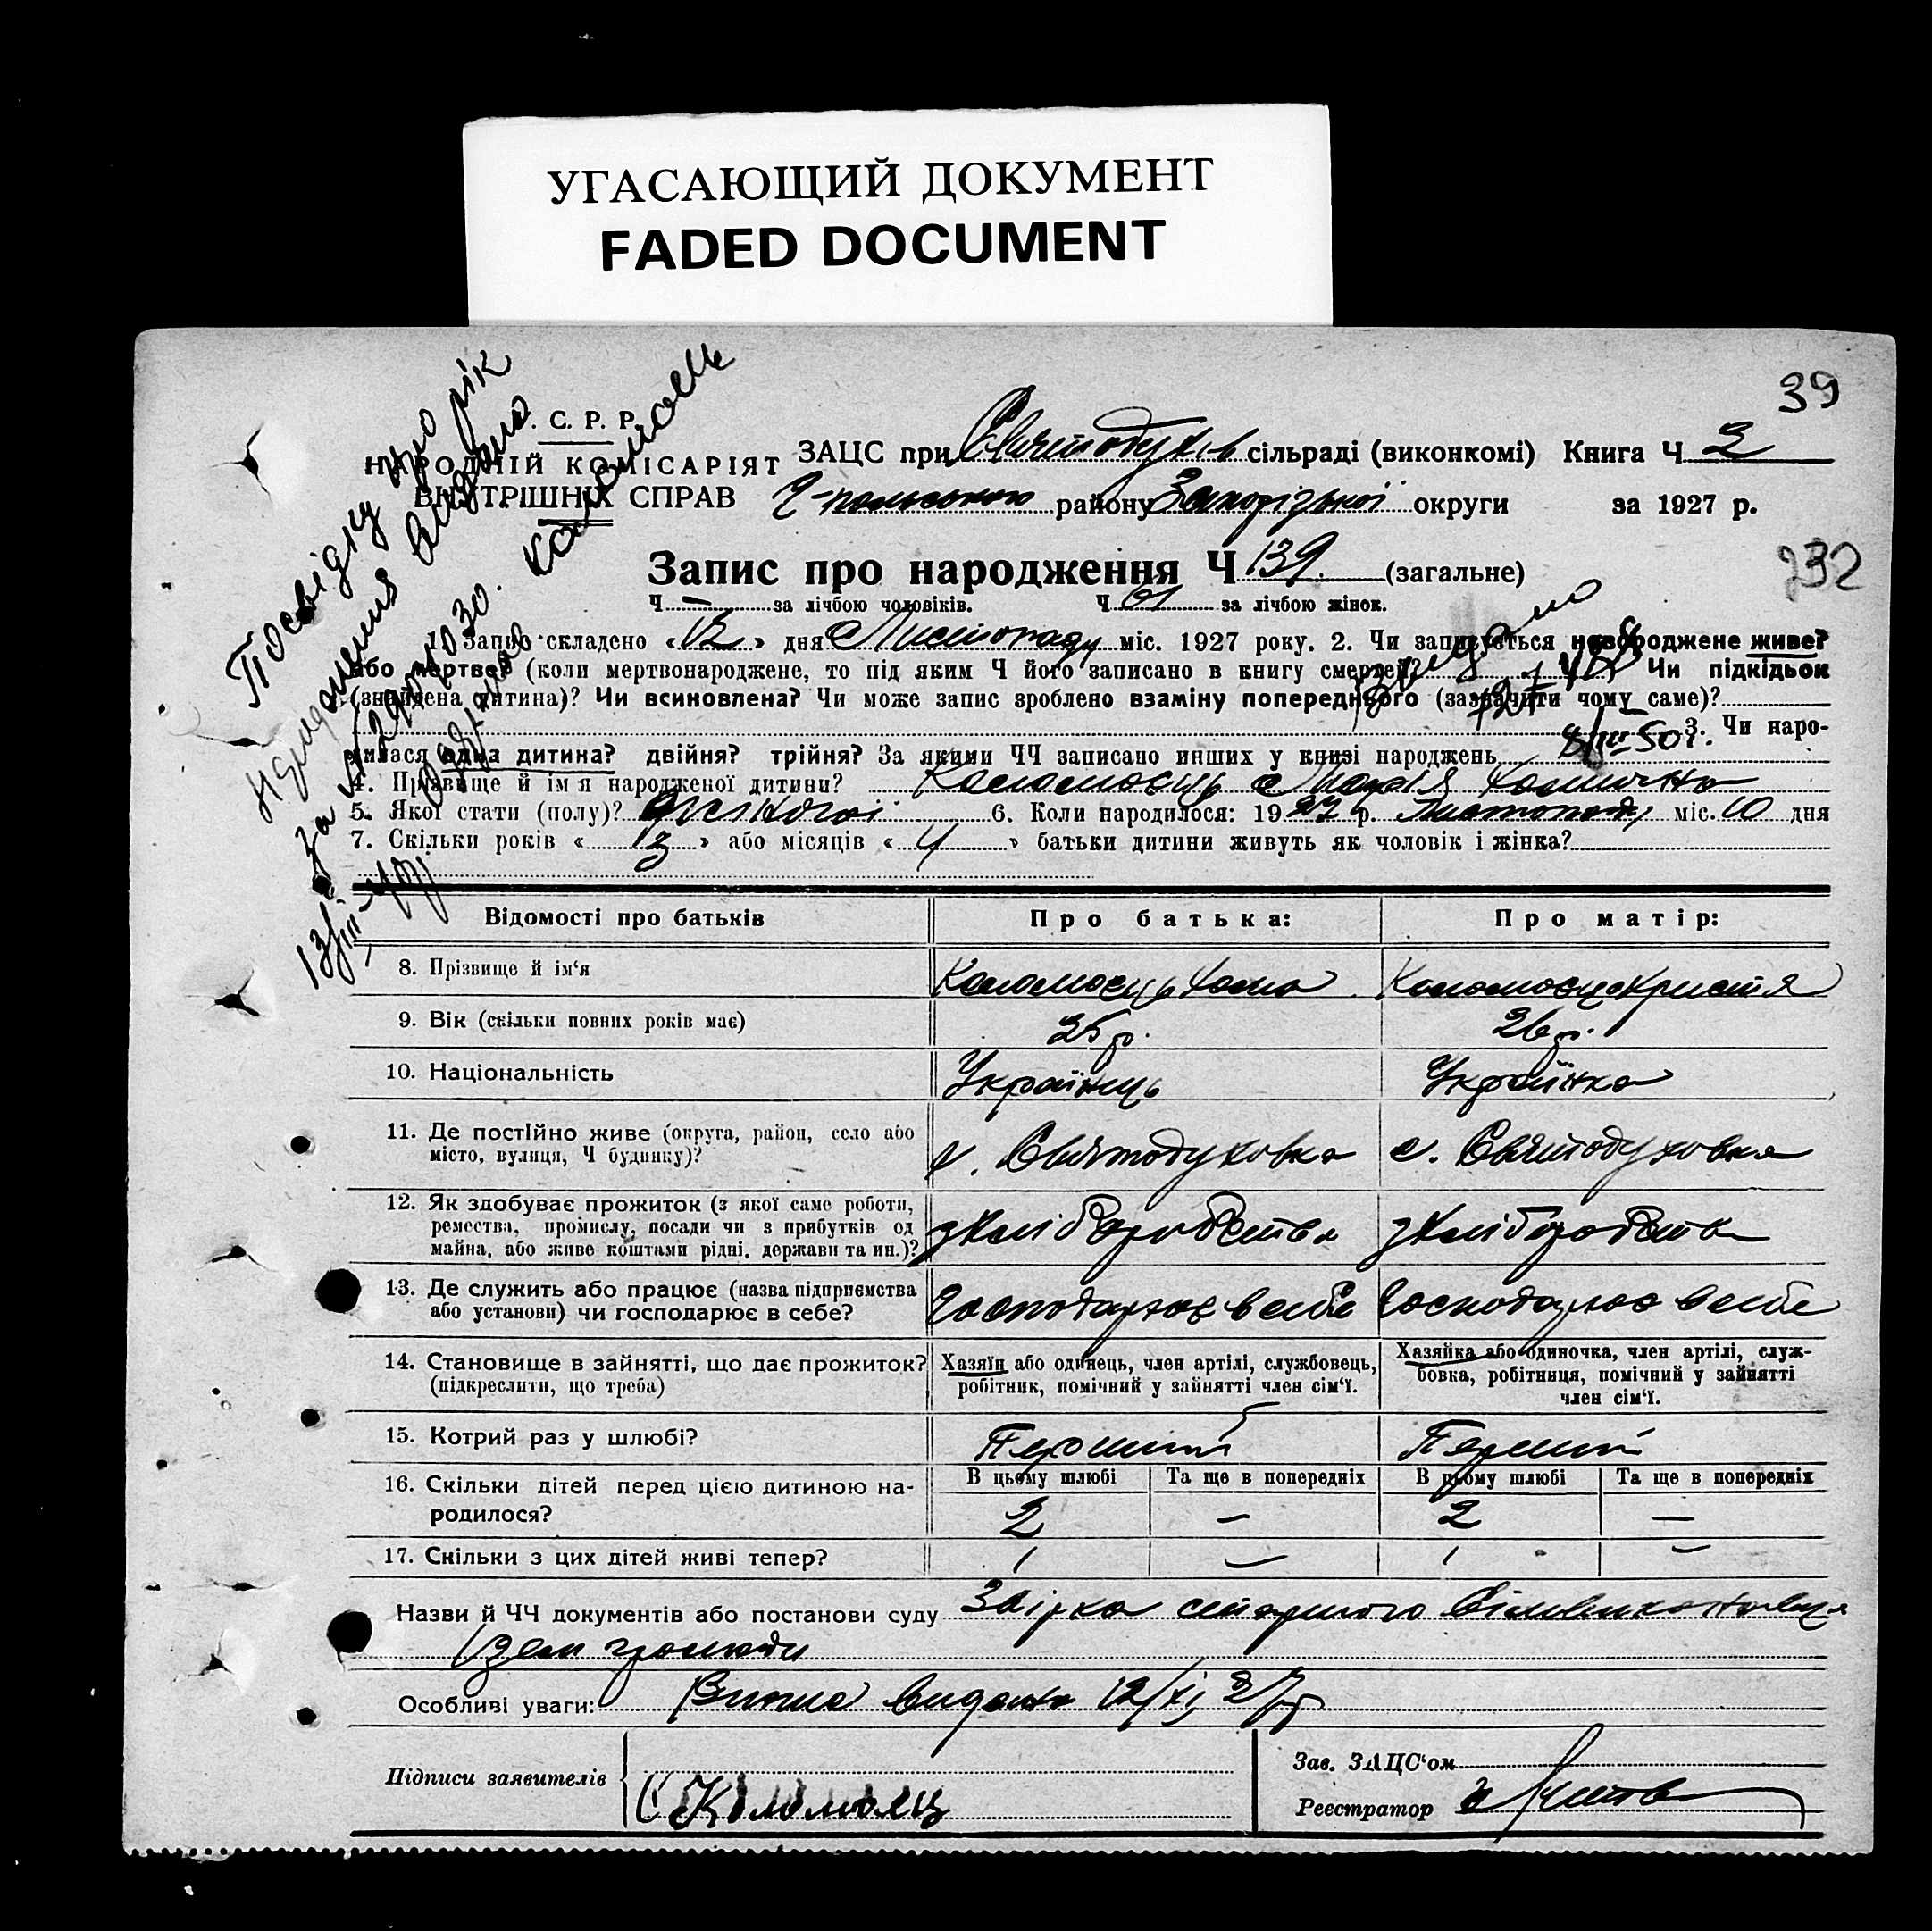 УГАСАЮЩИЙ ДОКУМЕНТ
FADED DOCUMENT
39
С. Р. Р.
НАРОДНІЙ КОМІСАРІЯТ
ВНУТРІШНІХ СПРАВ
ЗАЦС при сільраді (виконкомі) Книга Ч 2
району Запорізької округи за 1927 р.
Запис про народження Ч 139. (загальне)
232
Ч — за лічбою чоловіків. Ч 61 за лічбою жінок.
1. Запис складено «12» дня Листопаду міс. 1927 року. 2. Чи записується новороджене живе?
або мертве? (коли мертвонароджене, то під яким Ч його записано в книгу смертей? Чи підкідьок
(знайдена дитина)? Чи всиновлена? Чи може запис зроблено взаміну попереднього (зазначити чому саме)?
3. Чи наро-
дилася одна дитина? двійня? трійня? За якими ЧЧ записано инших у книзі народжень 8/III 50 г.
4. Прізвище й ім'я народженої дитини? Коломоєць Марія Хомична
5. Якої стати (полу)? жіночої 6. Коли народилося: 1927 р. листопаду міс. 10 дня
7. Скільки років « » або місяців « » батьки дитини живуть як чоловік і жінка?
Посвідку про рік
народження видано
Відомості про батьків Про батька: Про матір:
8. Прізвище й ім'я Коломоєць Хома Коломоєць Христя
9. Вік (скільки повних років має) 25 р. 26 р.
10. Національність Українець Українка
11. Де постійно живе (округа, район, село або
місто, вулиця, Ч будинку)? с. Святодуховка с. Святодуховка
12. Як здобуває прожиток (з якої саме роботи,
ремества, промислу, посади чи з прибутків од
майна, або живе коштами рідні, держави та ин.)? з хліборобства з хліборобства
13. Де служить або працює (назва підприємства
або установи) чи господарює в себе? Господарює в себе Господарює в себе
14. Становище в зайнятті, що дає прожиток?
(підкреслити, що треба)
Хазяїн або одинець, член артілі, службовець,
робітник, помічний у зайнятті член сім'ї.
Хазяйка або одиночка, член артілі, служ-
бовка, робітниця, помічний у зайнятті
член сім'ї.
15. Котрий раз у шлюбі? Перший Перший
16. Скільки дітей перед цією дитиною на-
родилося?
В цьому шлюбі Та ще в попередніх В цьому шлюбі Та ще в попередніх
2 — 2 —
17. Скільки з цих дітей живі тепер? 1 — 1 —
Назви й ЧЧ документів або постанови суду Звірка старшого сільвиконавця
зем громади
Особливі уваги: Витяг видано 12/XI 27 р
Підписи заявителів Коломоец
Зав. ЗАЦС'ом
Реєстратор